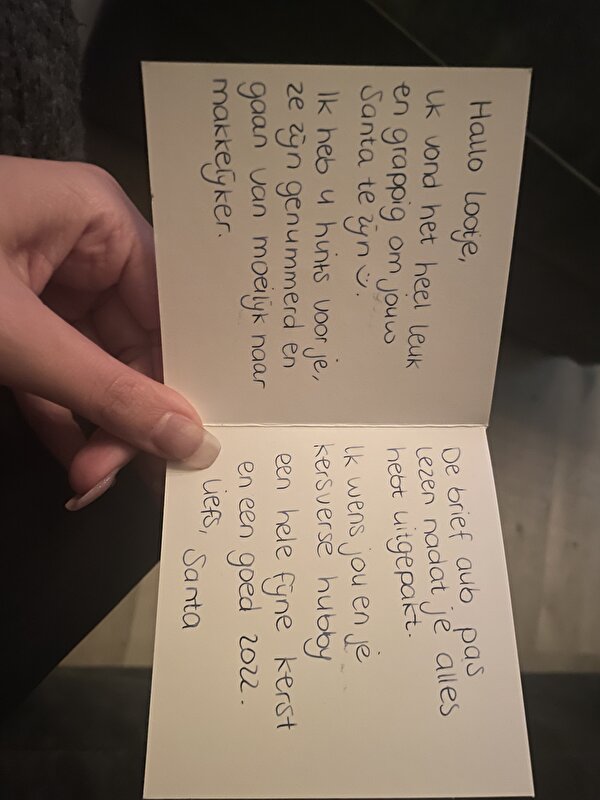 Hallo lootje,
ik vond het heel leuk
en grappig om jouw
Santa te zijn :).
Ik heb 4 hints voor je,
ze zijn genummerd en
gaan van moeilijk naar
makkelijker.
De brief aub pas
lezen nadat je alles
hebt uitgepakt.
Ik wens jou en je
kersverse hubby
een hele fijne kerst
en een goed 2022.
Liefs, Santa